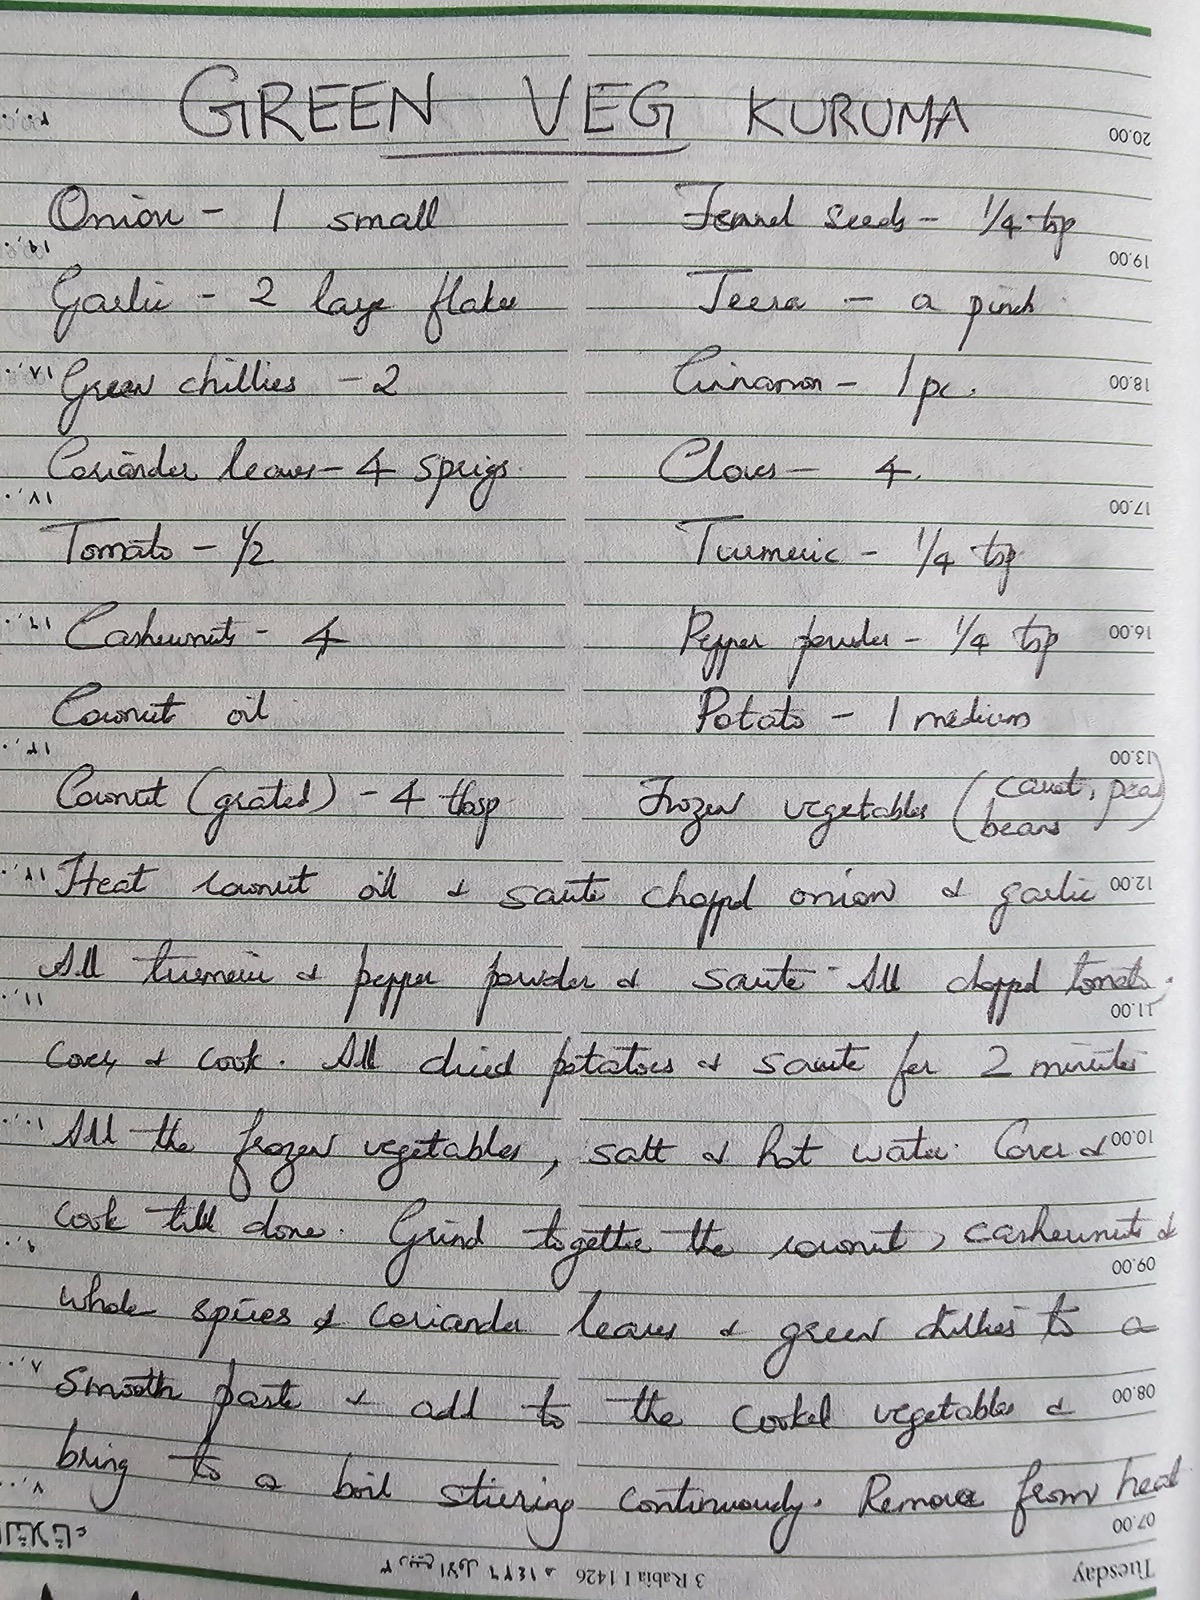 GREEN VEG KURUMA
Onion - 1 small
Garlic - 2 large flakes
Green chillies - 2
Coriander leaves - 4 sprigs.
Tomato - 1/2
Cashewnuts - 4
Coconut oil
Coconut (grated) - 4 tbsp
Fennel seeds - 1/4 tsp
Jeera - a pinch
Cinnamon - 1 pc.
Cloves - 4.
Turmeric - 1/4 tsp
Pepper powder - 1/4 tsp
Potato - 1 medium
Frozen vegetables (carrot, peas
beans)
Heat coconut oil & saute chopped onion & garlic
Add turmeric & pepper powder & saute. Add chopped tomato.
Cover & cook. Add diced potatoes & saute for 2 minutes
Add the frozen vegetables, salt & hot water. Cover &
cook till done. Grind together the coconut, cashewnuts &
whole spices & coriander leaves & green chillies to a
smooth paste & add to the cooked vegetables &
bring to a boil stirring continuously. Remove from heat
20.00
19.00
18.00
17.00
16.00
13.00
12.00
11.00
10.00
09.00
08.00
07.00
Tuesday
3 Rabia I 1426
٣ ربيع الأول ١٤٢٦ هـ
الثلاثاء